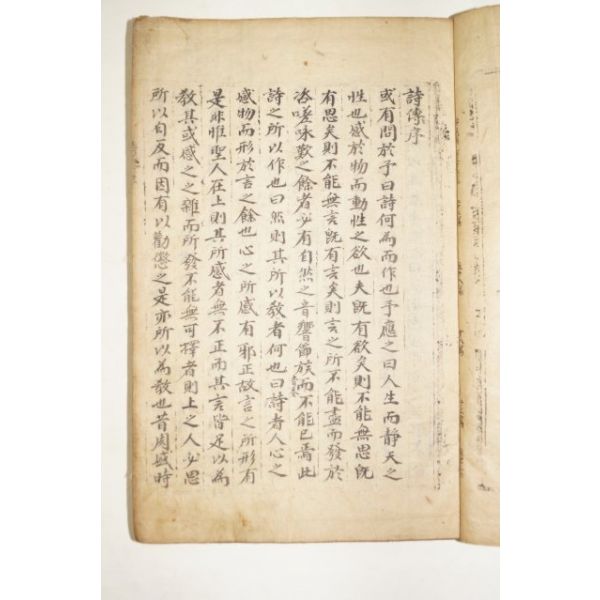 詩傳序
或有問於予曰詩何為而作也予應之曰人生而靜天之
性也感於物而動性之欲也夫既有欲矣則不能無思既
有思矣則不能無言既有言矣則言之所不能盡而發於
咨嗟咏歎之餘者必有自然之音響節族而不能已焉此
詩之所以作也曰然則其所以教者何也曰詩者人心之
感物而形於言之餘也心之所感有邪正故言之所形有
是非惟聖人在上則其所感者無不正而其言皆足以為
教其或感之之雜而所發不能無可擇者則上之人必思
所以自反而因有以勸懲之是亦所以為教也昔周盛時